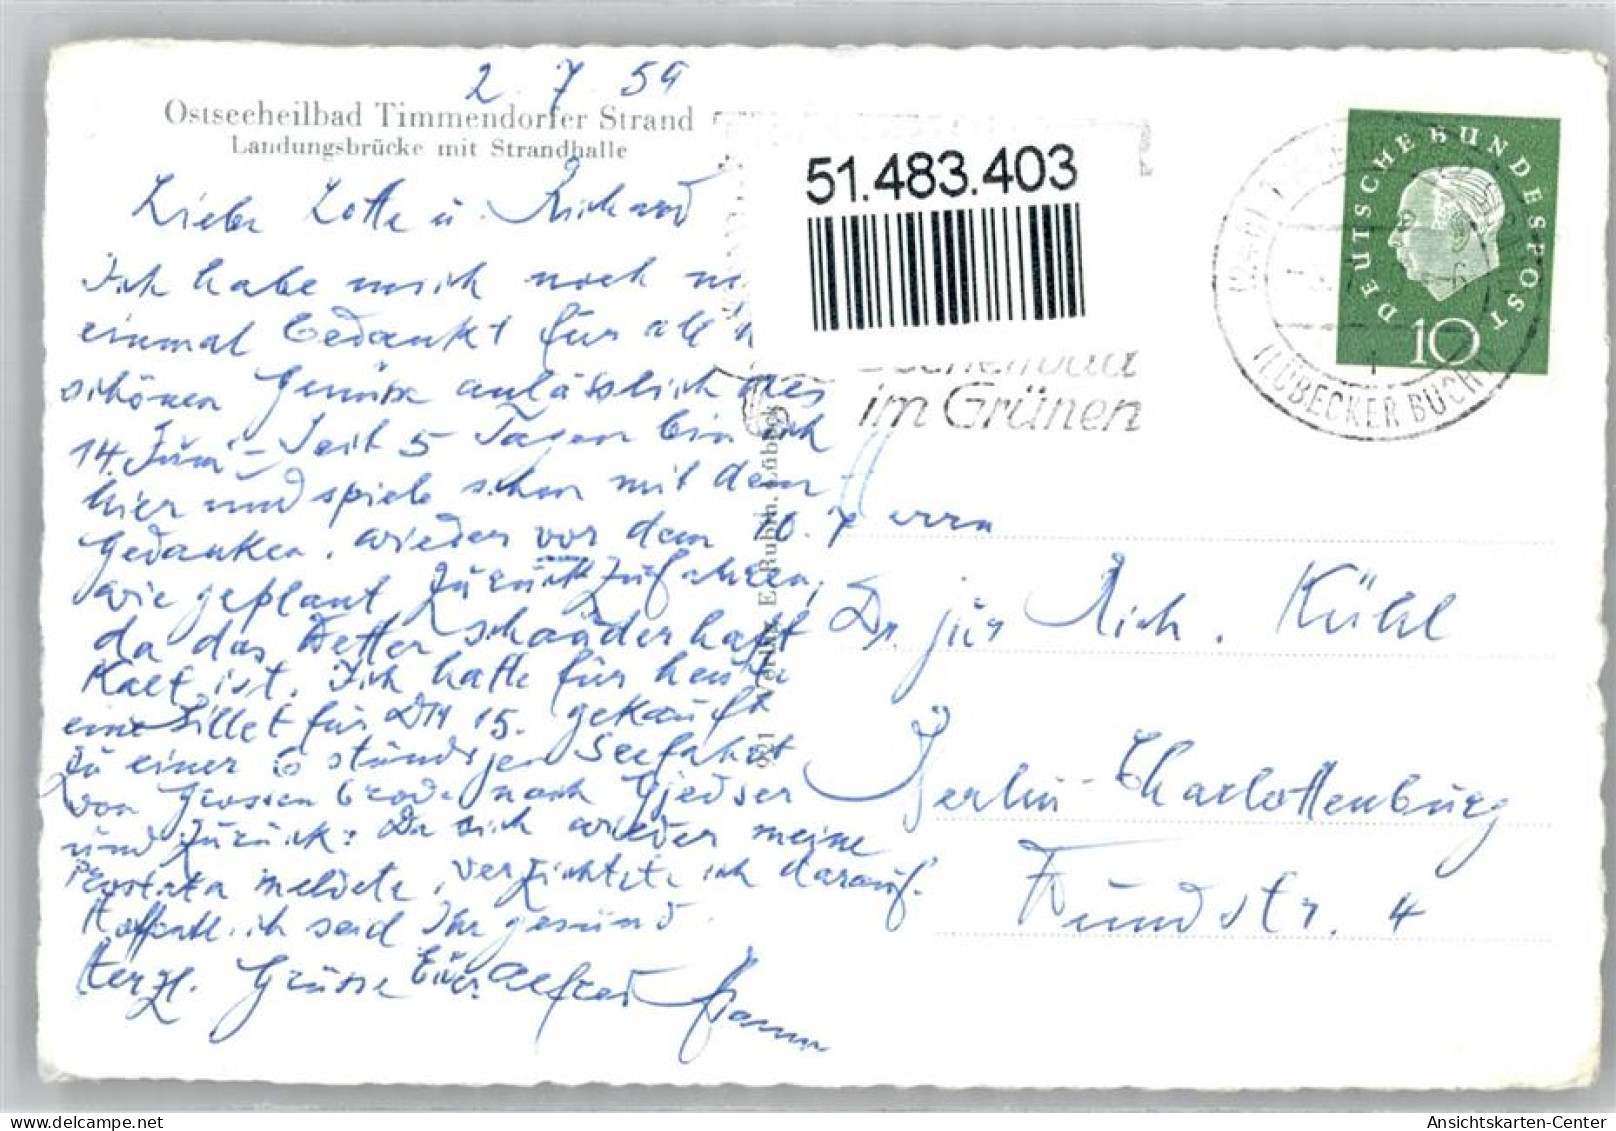 2. 7. 59
Ostseeheilbad Timmendorfer Strand
Landungsbrücke mit Strandhalle
Liebe Lotte u. Richard
Ich habe mich noch
einmal bedankt für all
schönen Genüsse anlässlich des
14. Juni – Seit 5 Tagen bin ich
hier und spiele schon mit dem
Gedanken, wieder vor dem 10. 7
wie geplant zurückzufahren,
da das Wetter schauderhaft
kalt ist. Ich hatte für heute
ein Billet für DM 15. gekauft
zu einer 6 stündigen Seefahrt
von Grossenbrode nach Gjedser
und zurück. Da sich wieder meine
Prostata meldete, verzichtete ich darauf.
Hoffentlich seid Ihr gesund.
Herzl. Grüsse Euer Alfred
Verlag E. Rubin, Lübeck
51.483.403
im Grünen
LÜBECKER BUCHT
DEUTSCHE BUNDESPOST
10
Herrn
Dr. jur Rich. Kühl
Berlin-Charlottenburg
Fundstr. 4
Ansichtskarten-Center